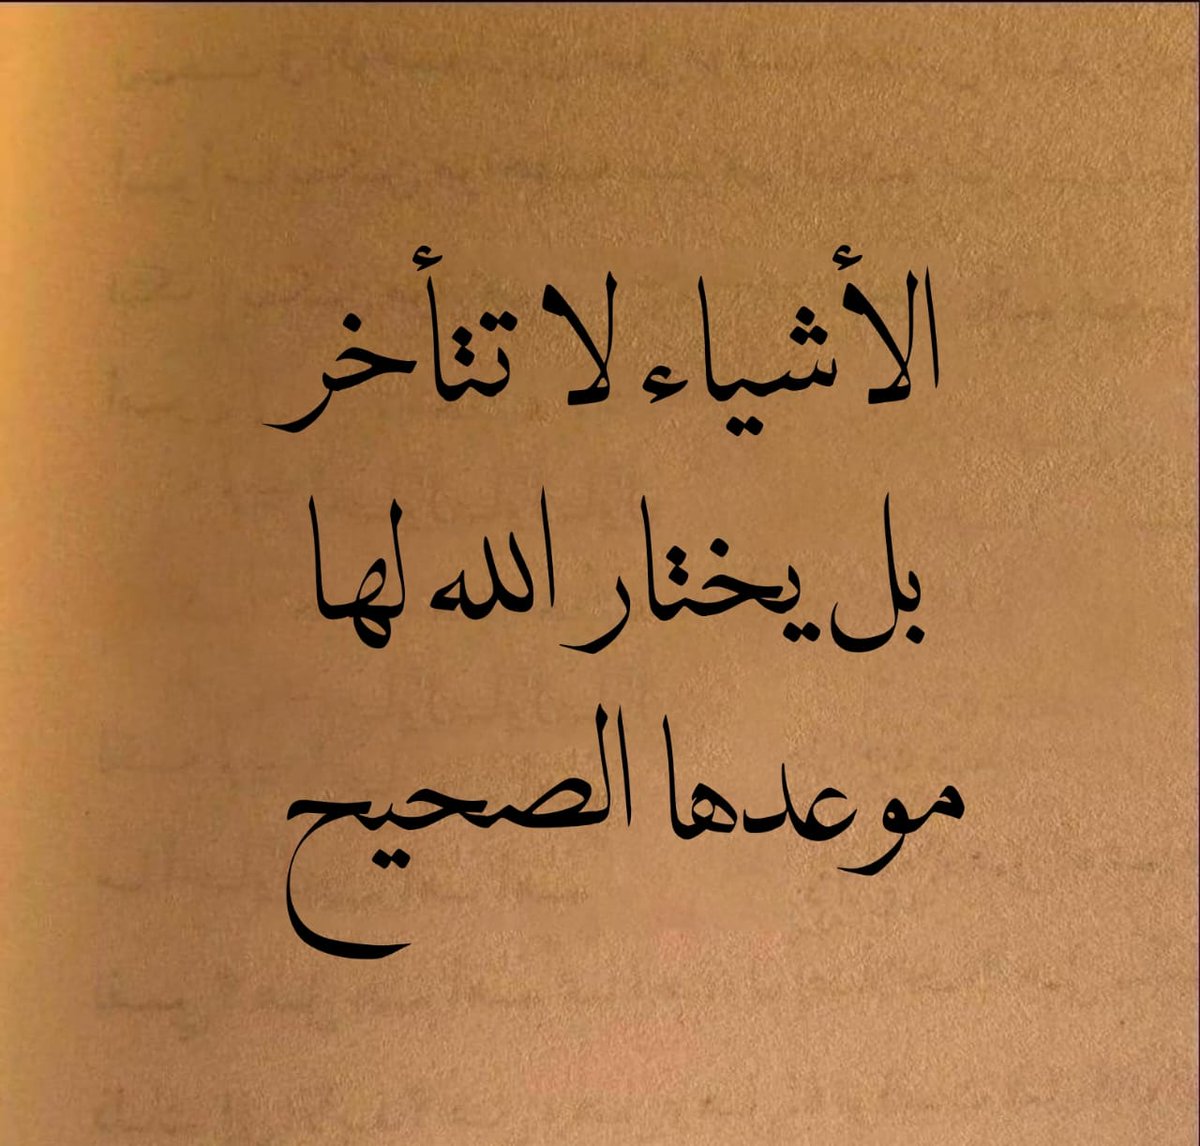 الأشياء لا تتأخر
بل يختار الله لها
موعدها الصحيح